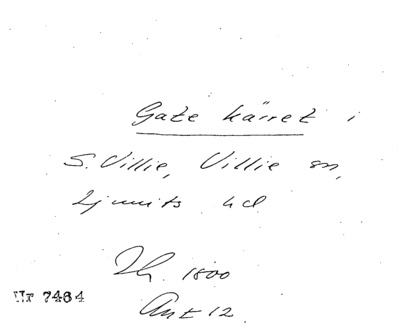 Gate kärret i
S. Villie, Villie sn,
Ljunits hd
Jh. 1800
Ant 12
Nr 7464